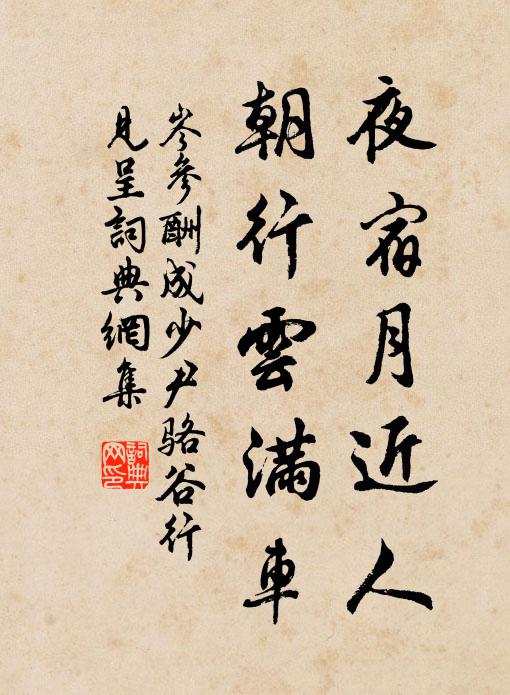 夜宿月近人
朝行雲滿車
岑參酬成少尹骆谷行
見呈詞典網集
詞典
网印